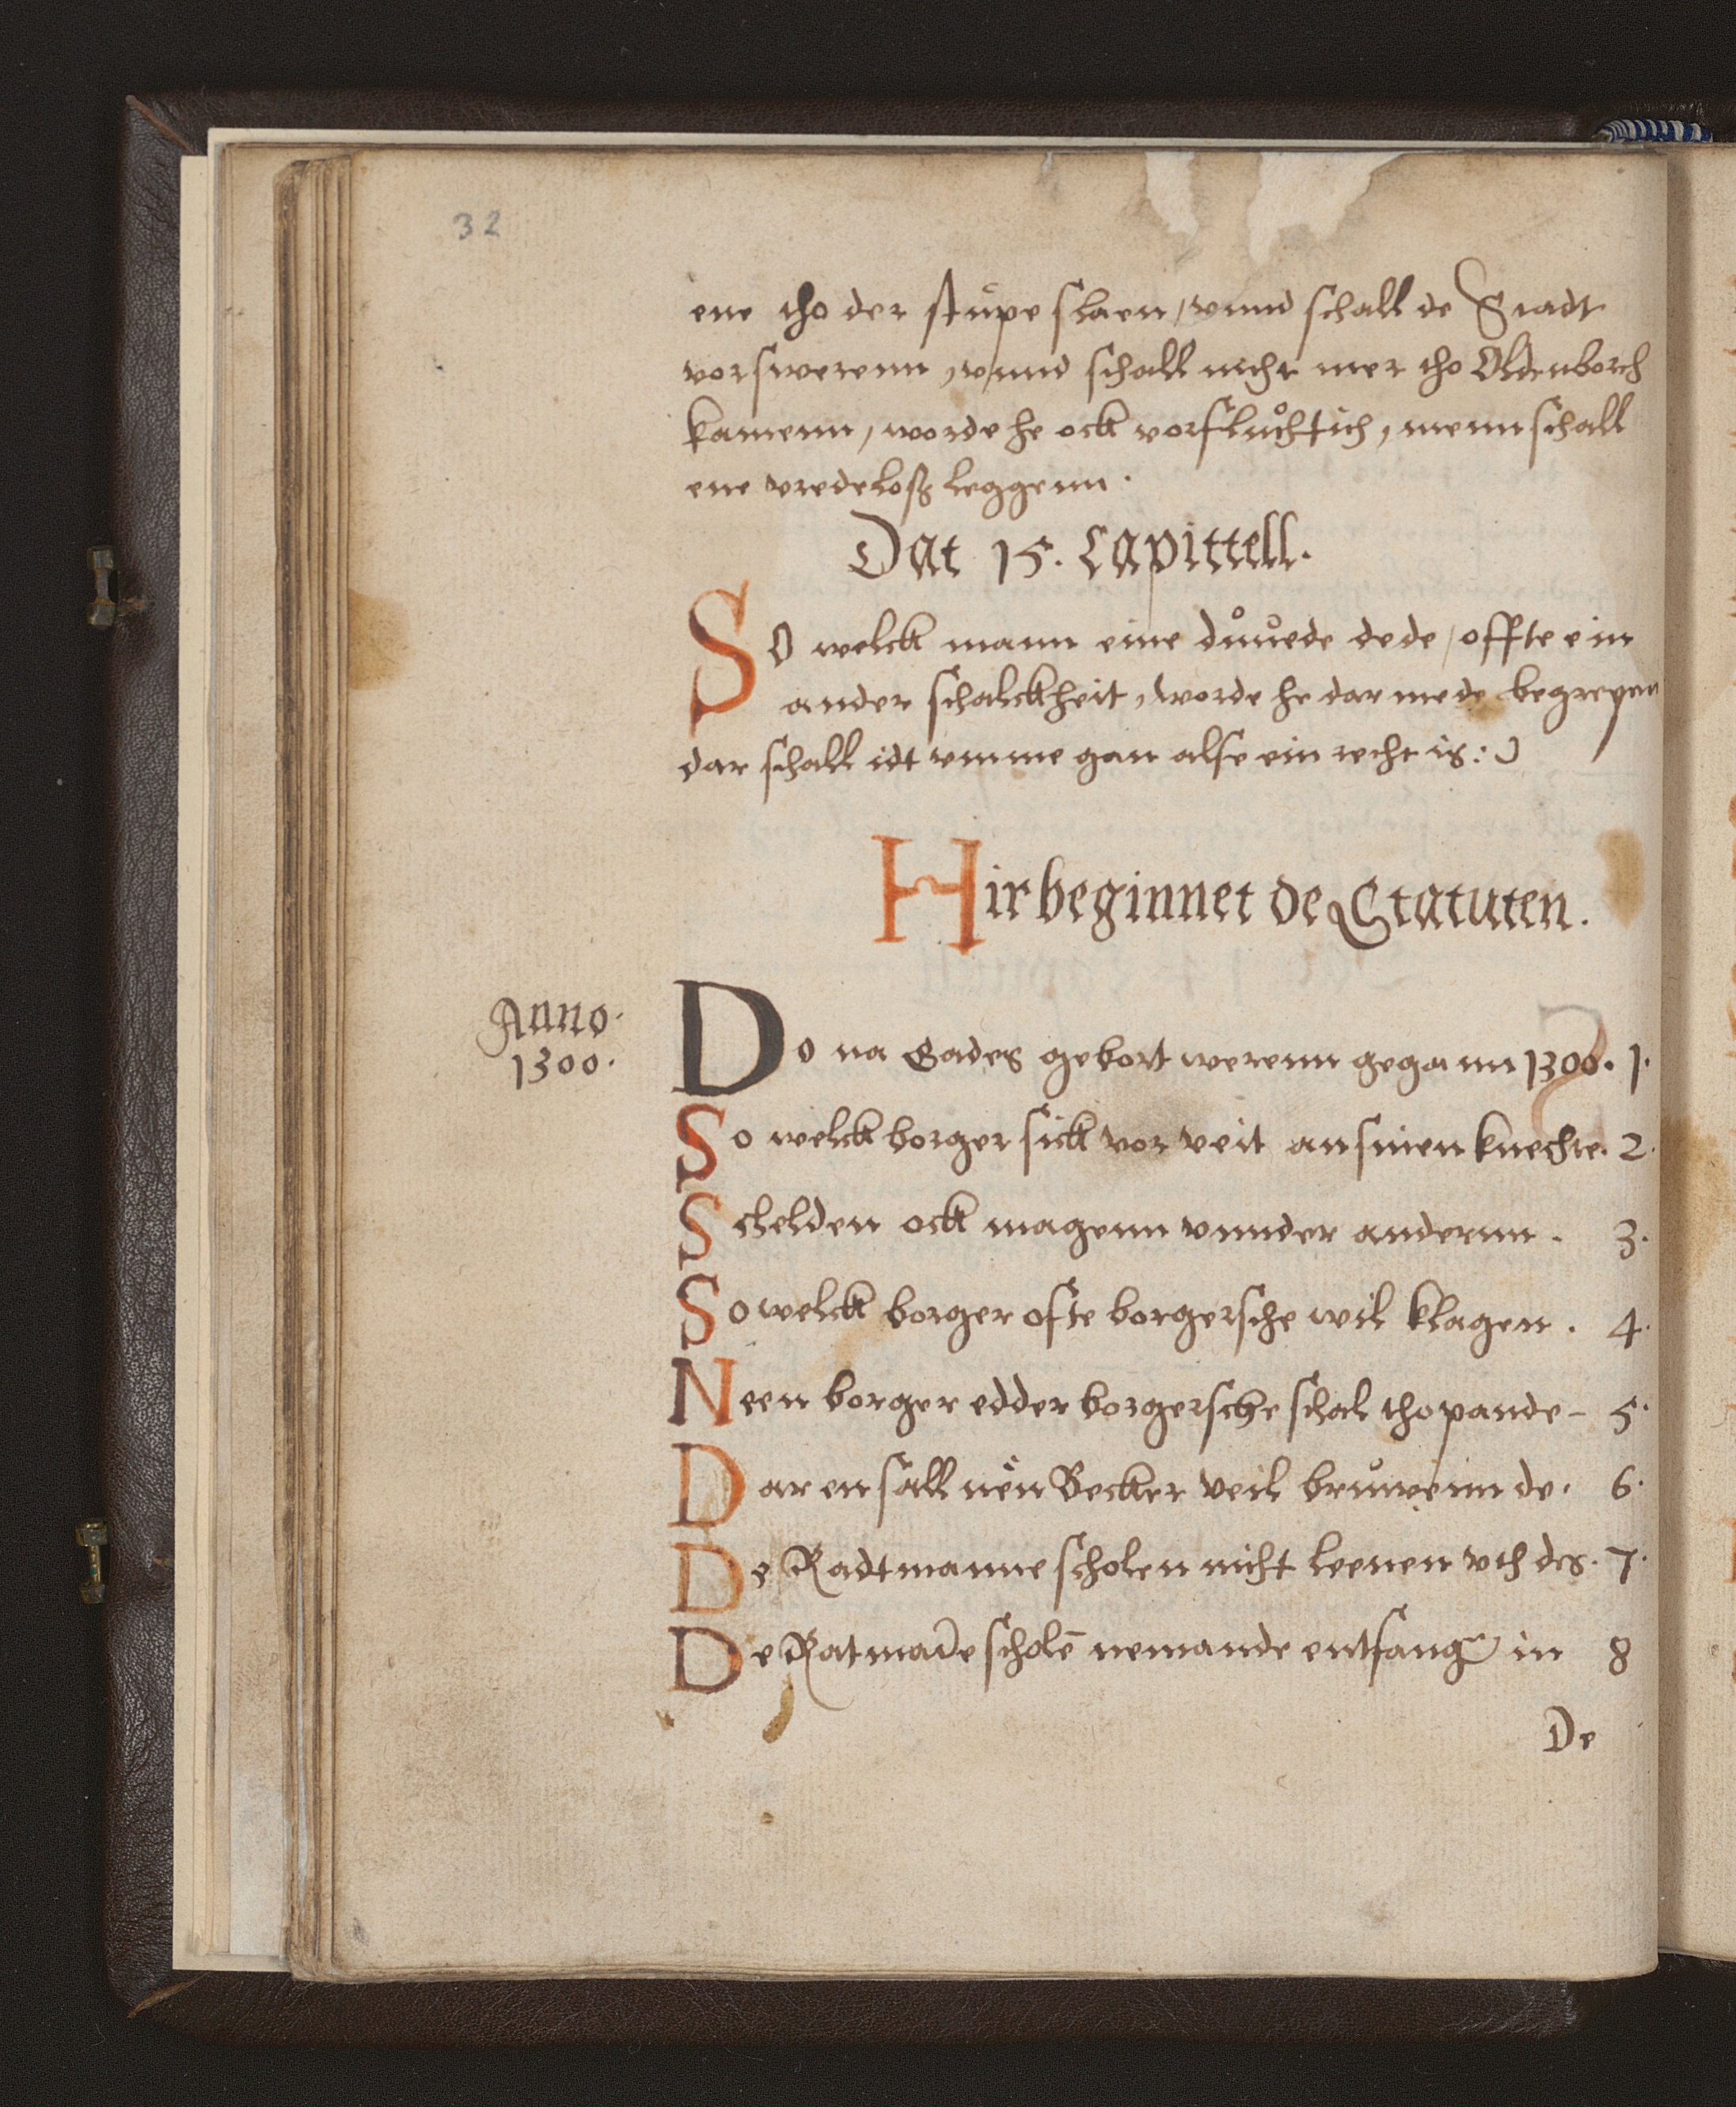 32
ene tho der stupe slaen / vnnd schall de Stadt
vorswerenn, vnnd schall nicht mer tho Oldenborch
kamenn, worde he ock vorfluchtich, menn schall
ene vredeloß leggenn.
Dat 15. Capittell.
SO welck mann eine důuede dede / offte ein
ander schalckheit, worde he dar mede begrepen
dar schall idt vmme gan alse ein recht is :
Hir beginnet de Statuten.
Anno.
1300.
Do na Gades gebort werenn gegann 1300. 1.
So welck borger sick vor veit an sinen knechte. 2.
Schelden ock magenn vnnder andernn. 3.
So welck borger ofte borgersche wil klagen. 4.
Neen borger edder borgersche schal tho pande - 5.
Dar en sall nen Becker veil bruwenn de. 6.
De Radtmanne scholen nicht leenen vth des. 7.
De Ratmāne scholē nemande entfang in 8
De